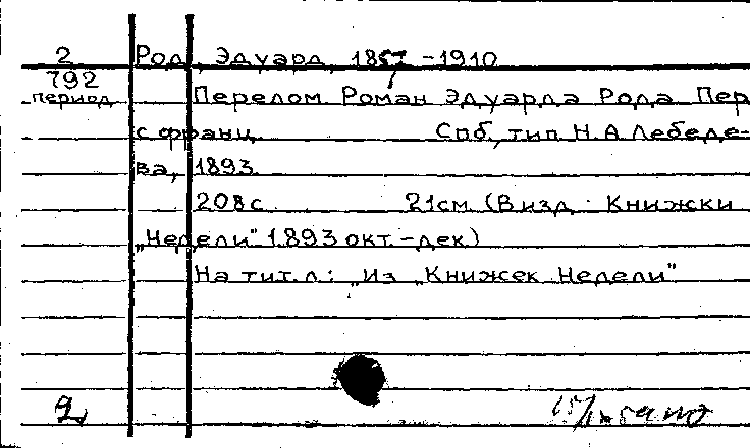 2 Род, Эдуард, 1857-1910
792
период
Перелом Роман Эдуарда Рода Пер
с франц. Спб, тип Н.А Лебеде-
ва, 1893.
208с 21см (В изд : Книжки
„Недели" 1893 окт.-дек)
На тит.л: „Из „Книжек Недели"